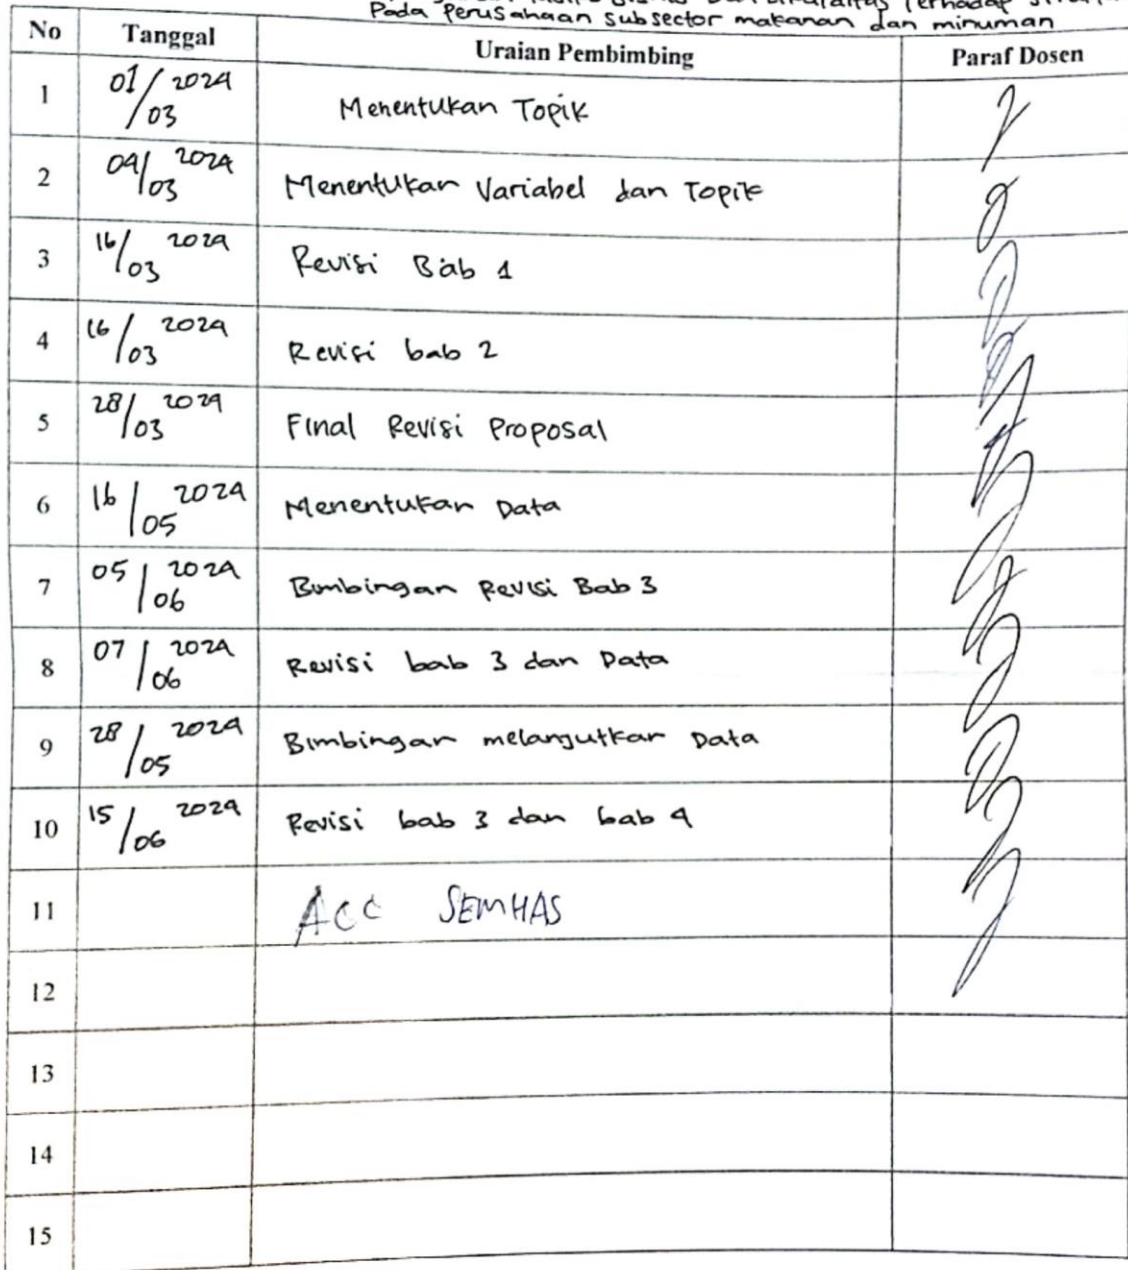 Terhadap
Pada Perusahaan subsector makanan dan minuman
No Tanggal Uraian Pembimbing Paraf Dosen
1 01/03 2024 Menentukan Topik
2 04/03 2024 Menentukan Variabel dan Topik
3 16/03 2024 Revisi Bab 1
4 16/03 2024 Revisi bab 2
5 28/03 2024 Final Revisi Proposal
6 16/05 2024 Menentukan Data
7 05/06 2024 Bimbingan Revisi Bab 3
8 07/06 2024 Revisi bab 3 dan Data
9 28/05 2024 Bimbingan melanjutkan Data
10 15/06 2024 Revisi bab 3 dan bab 4
11 ACC SEMHAS
12
13
14
15